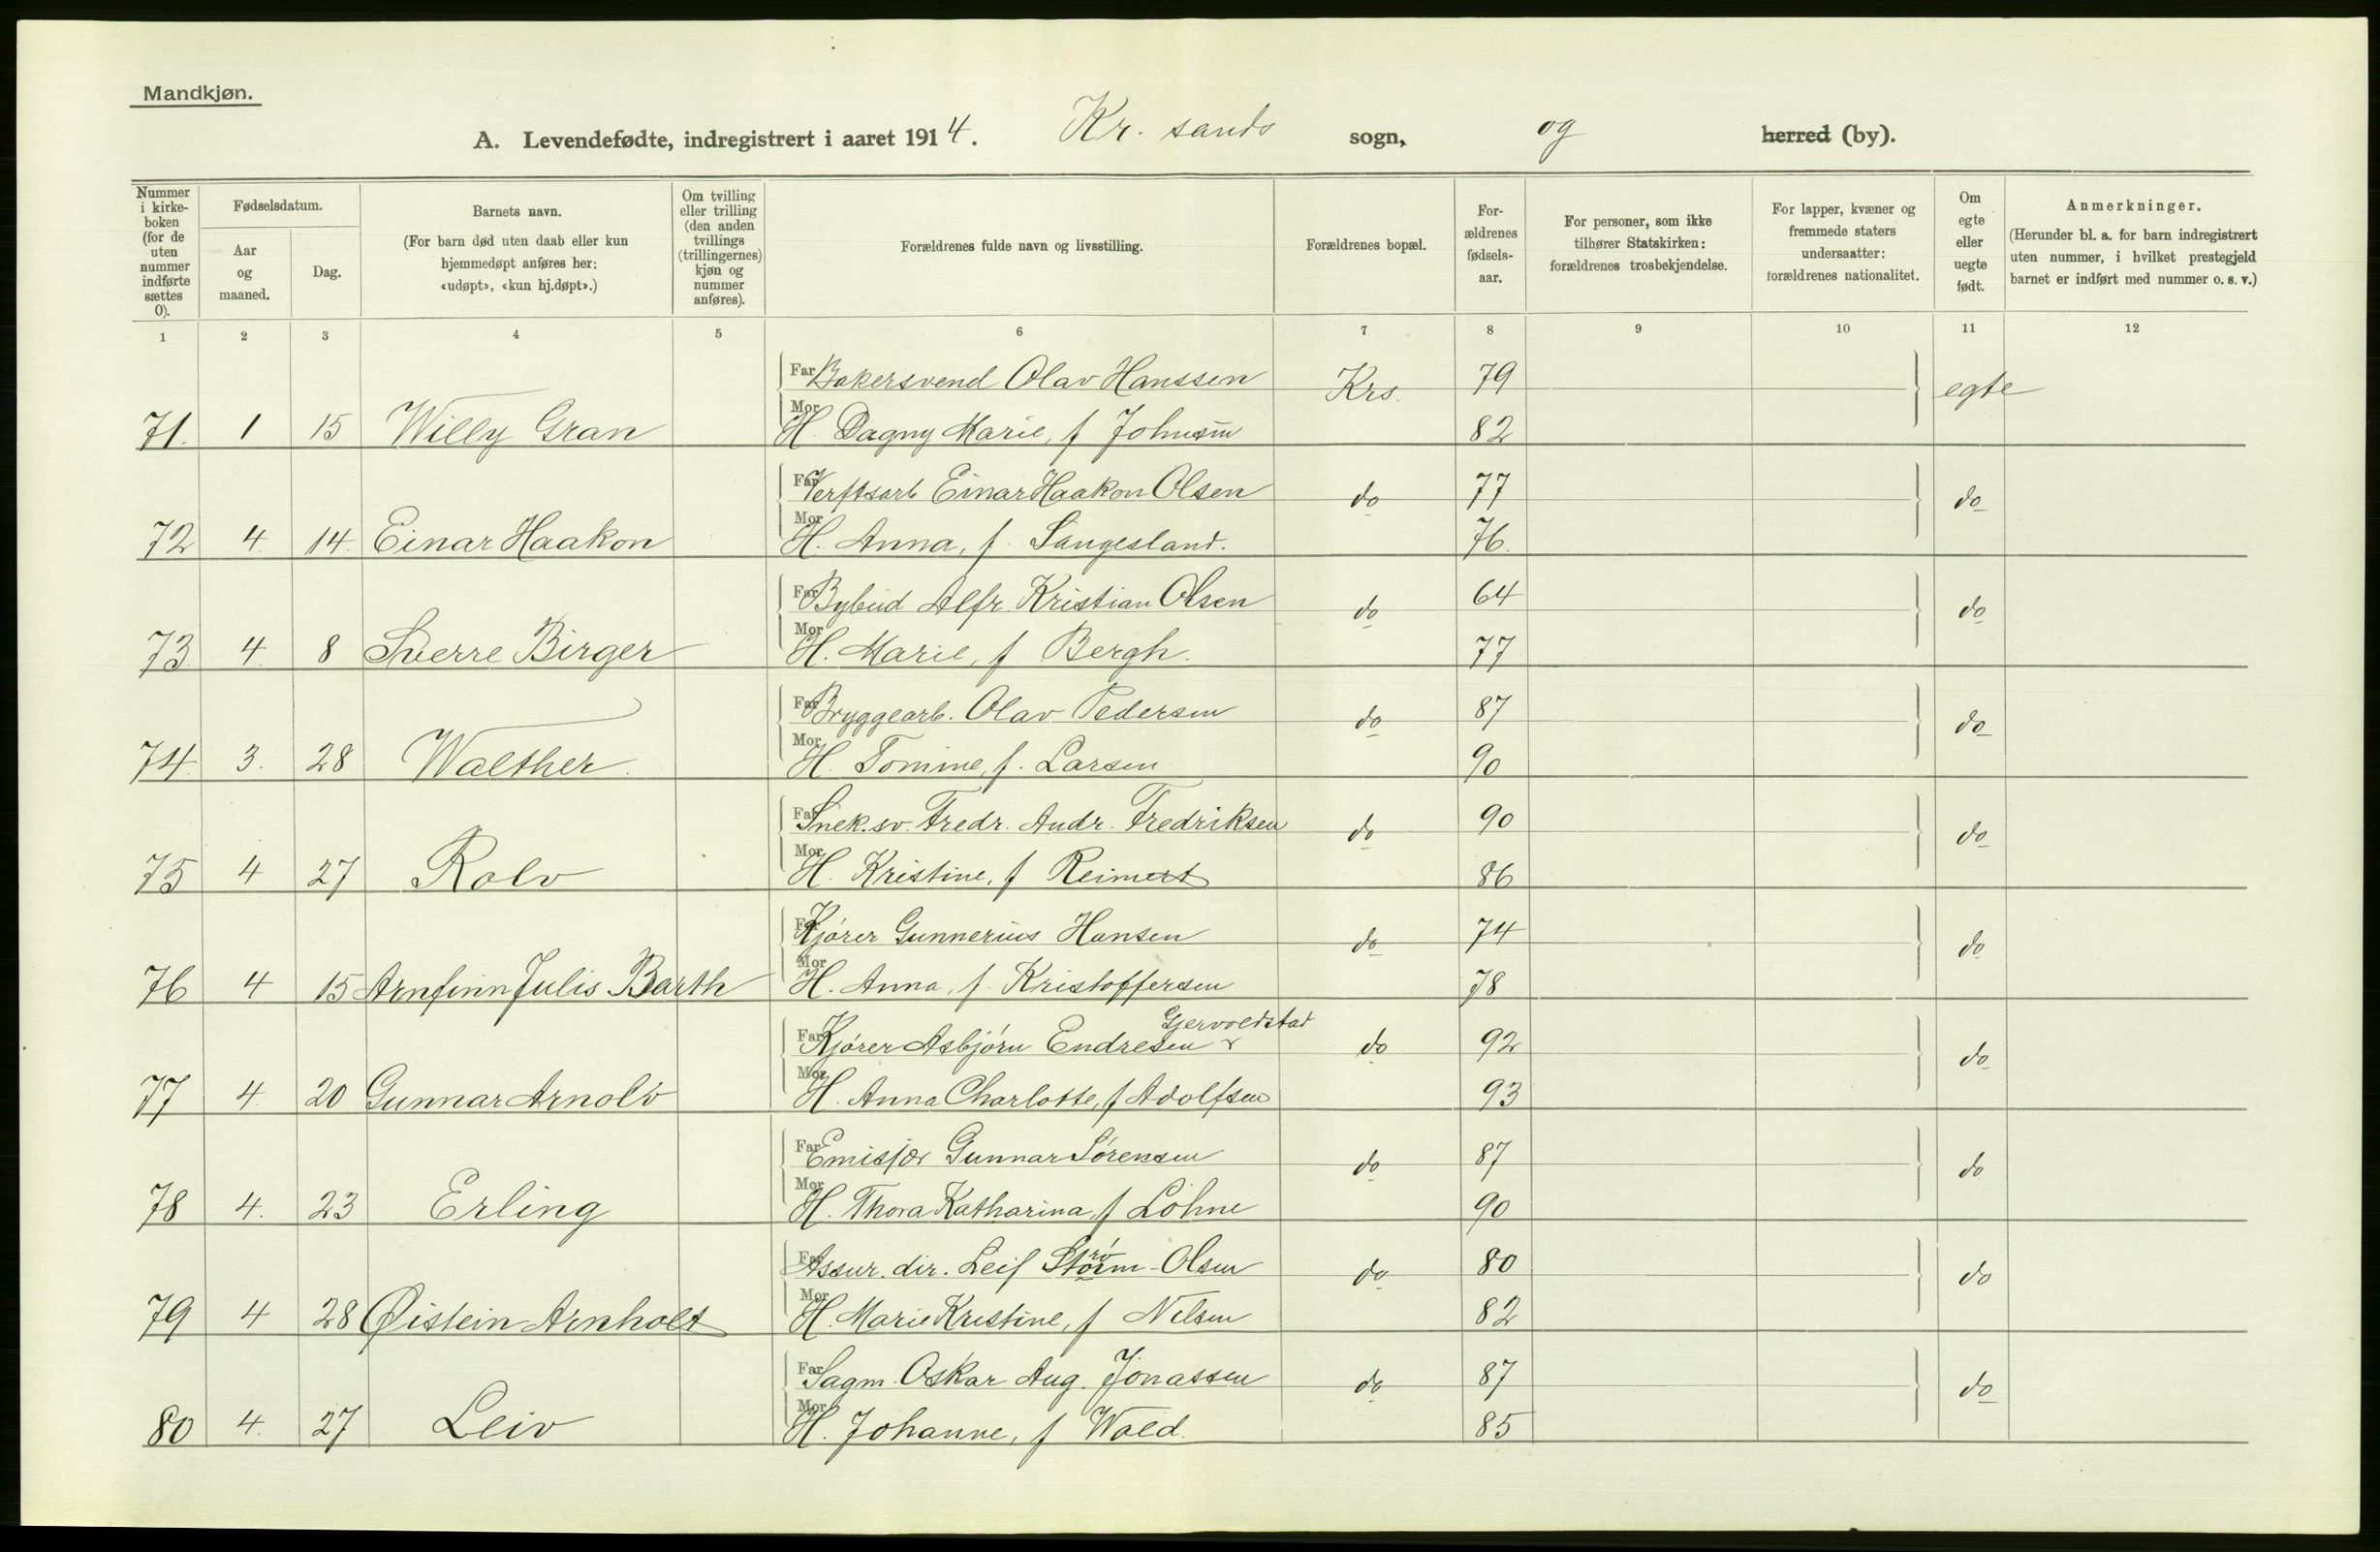 Mandkjøn.
A. Levendefødte, indregistrert i aaret 1914. Kr. sands sogn, og herred (by).
Nummer i kirke-boken (for de uten nummer indførte sættes 0).
Fødselsdatum.
Aar og maaned.
Dag.
Barnets navn.
(For barn død uten daab eller kun hjemmedøpt anføres her: «udøpt», «kun hj.døpt».)
Om tvilling eller trilling (den anden tvillings (trillingernes) kjøn og nummer anføres).
Forældrenes fulde navn og livsstilling.
Forældrenes bopæl.
For-ældrenes fødsels-aar.
For personer, som ikke tilhører Statskirken: forældrenes trosbekjendelse.
For lapper, kvæner og fremmede staters undersaatter: forældrenes nationalitet.
Om egte eller uegte født.
Anmerkninger.
(Herunder bl. a. for barn indregistrert uten nummer, i hvilket prestegjeld barnet er indført med nummer o. s. v.)
1 2 3 4 5 6 7 8 9 10 11 12
Far Bakersvend Olav Hanssen Krs. 79 egte
71. 1 15 Willy Gran Mor H. Dagny Marie, f Johnsen 82
Far Verftsarb Einar Haakon Olsen do 77 do
72 4 14. Einar Haakon Mor H. Anna, f. Langesland. 76.
Far Bybud Alfr. Kristian Olsen do 64 do
73 4. 8 Sverre Birger Mor H. Marie, f Bergh. 77
Far Bryggearb. Olav Pedersen do 87 do
74. 3. 28 Walther. Mor H. Tomine, f. Larsen 90
Far Snek.sv. Fredr. Andr. Fredriksen do 90 do
75 4 27 Rolv Mor H. Kristine, f Reimert 86
Far Kjører Gunnerius Hansen do 74 do
76 4 15 Arnfinn Julis Barth Mor H. Anna, f. Kristoffersen 78
Gjervoldstad
Far Kjører Asbjørn Endresen do 92 do
77 4 20 Gunnar Arnolv Mor H. Anna Charlotte, f Adolfsen 93
Far Emisjær Gunnar Sørensen do 87 do
78 4. 23 Erling Mor H. Thora Katharina, f Løhne 90
Far Assur. dir. Leif Strøm-Olsen do 80 do
79 4 28 Øistein Arnholt Mor H. Marie Kristine, f Nilsen 82
Far Sagm. Oskar Aug. Jonassen do 87 do
80 4. 27 Leiv Mor H. Johanne, f Wold. 85